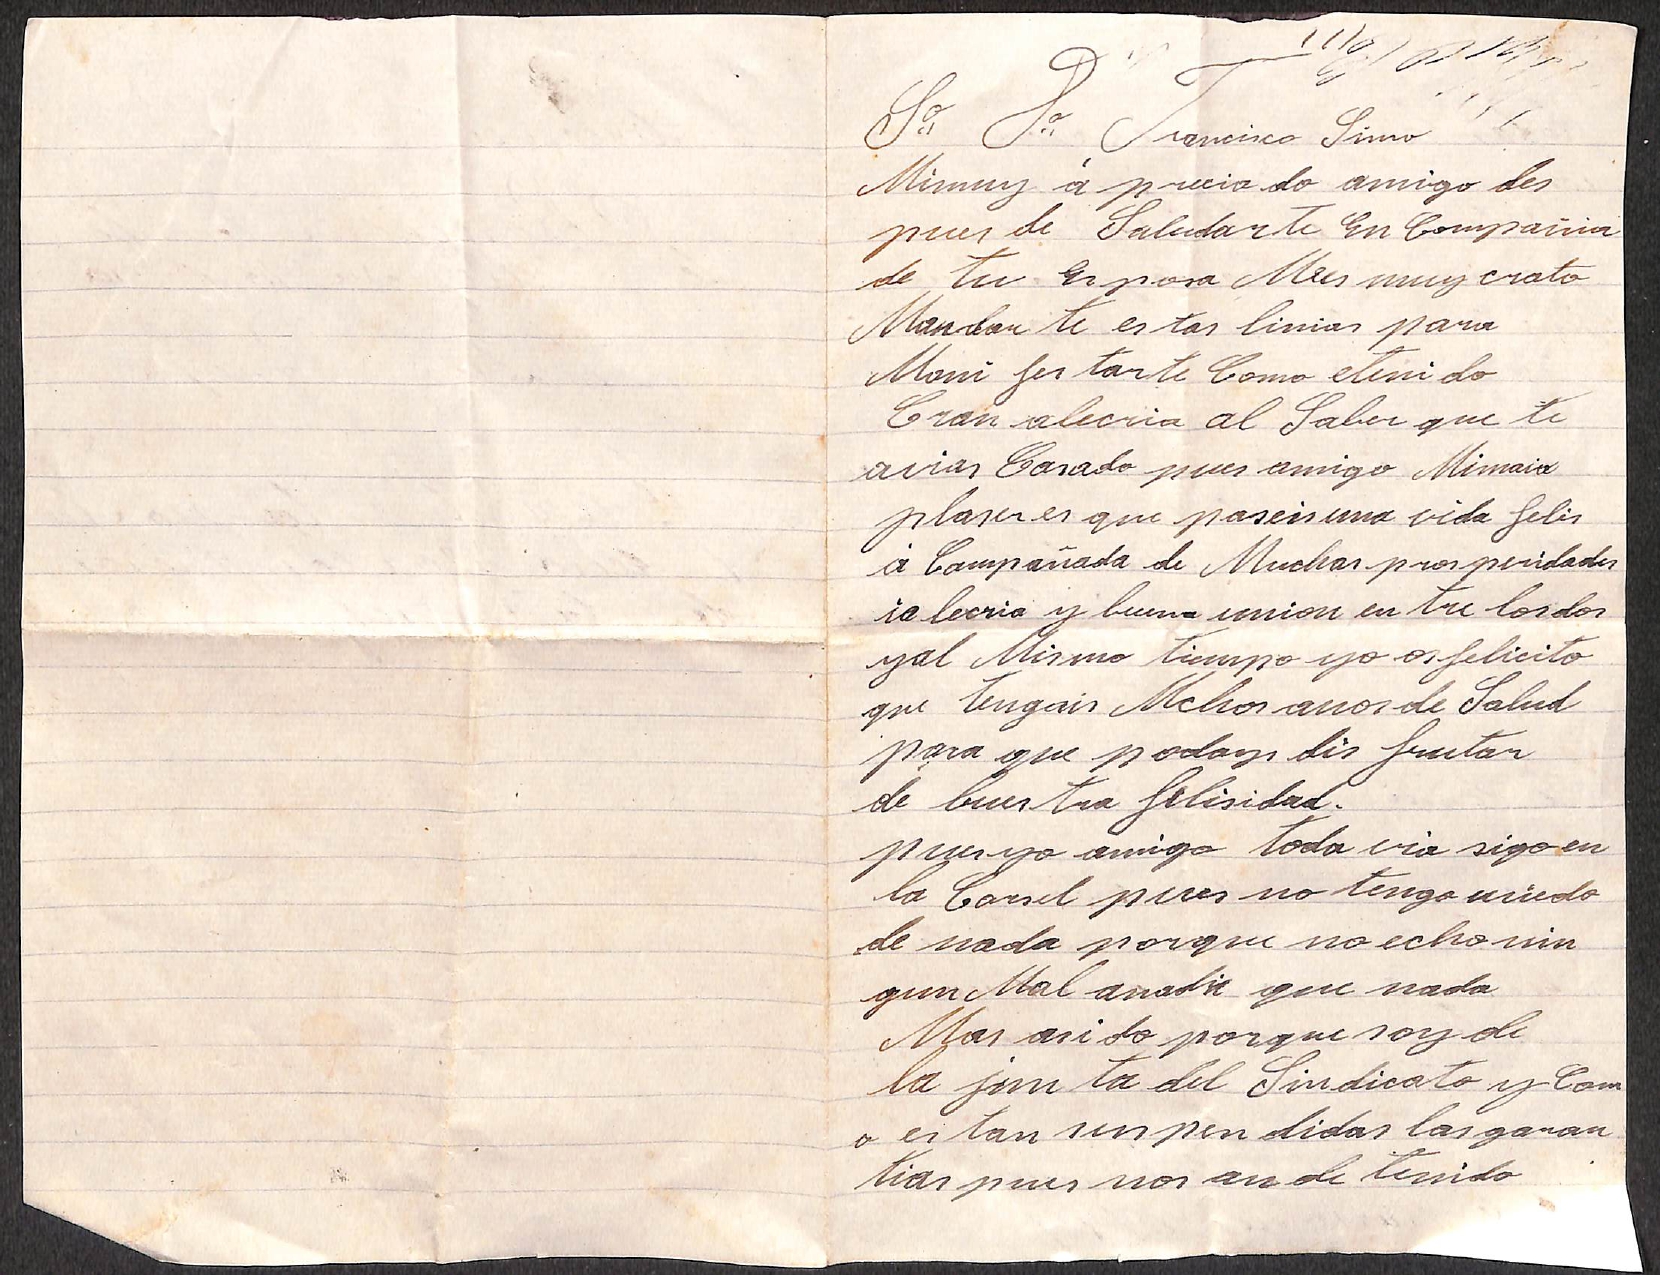 Sr. Dn. Francisco Simo
Mimuy á preciado amigo des
pues de Saludarte En Compañia
de tu Esposa Mees muy crato
Mandar te estas linias para
Mani festarte Como eteni do
Cran alecria al Saber que te
avias Casado pues amigo Mimaió
plaser es que paseis una vida felis
á Compañada de Muchas pros peridades
ia lecria y buena union en tre los dos
yal Mismo tiempo yo os felicito
que tengais Mchos anos de Salud
para que podays dis frutar
de bues tra felisidad.
pues yo amigo toda via sigo en
la Carsel pues no tengo miedo
de nada porque no echo nin
gun Mal anadie que nada
Mas asi do porque soy de
la jun ta del Sindicato y Com
o es tan suspen didas las garan
tias pues nos an de tenido